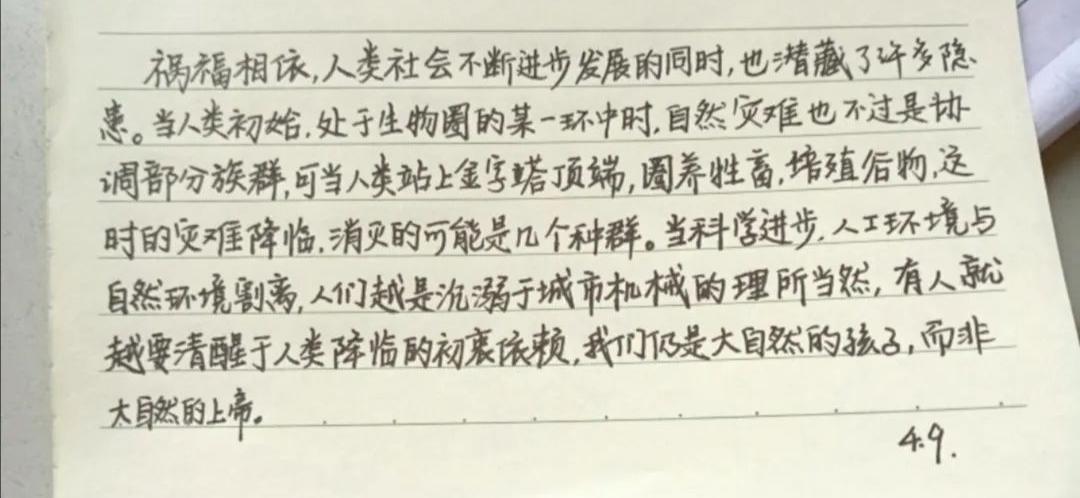 祸福相依,人类社会不断进步发展的同时,也潜藏了许多隐
患。当人类初始,处于生物圈的某一环中时,自然灾难也不过是协
调部分族群,可当人类站上金字塔顶端,圈养牲畜,培殖谷物,这
时的灾难降临,消灭的可能是几个种群。当科学进步,人工环境与
自然环境割离,人们越是沉溺于城市机械的理所当然,有人就
越要清醒于人类降临的初衷依赖,我们仍是大自然的孩子,而非
大自然的上帝。
4.9.